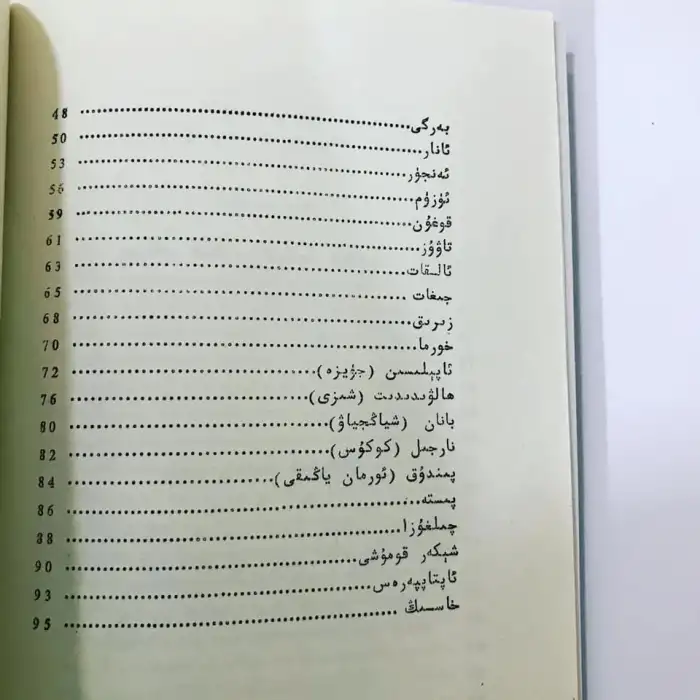 بەرگى 48
ئانار 50
ئەنجۈر 53
ئۈزۈم 56
قوغۇن 59
تاۋۇز 61
ئالىقات 63
جىغات 65
زىرىق 68
خورما 70
ئاپېلىسىن (جۈيزە) 72
ھالۋىدىدىت (شىزى) 76
بانان (شياڭجياۋ) 80
نارجىل (كوكۇس) 82
پىندۇق (ئورمان ياڭىقى) 84
پىستە 86
چىلغۇزا 88
شېكەر قومۇشى 90
ئاپتاپپەرەس 93
خاسىىڭ 95